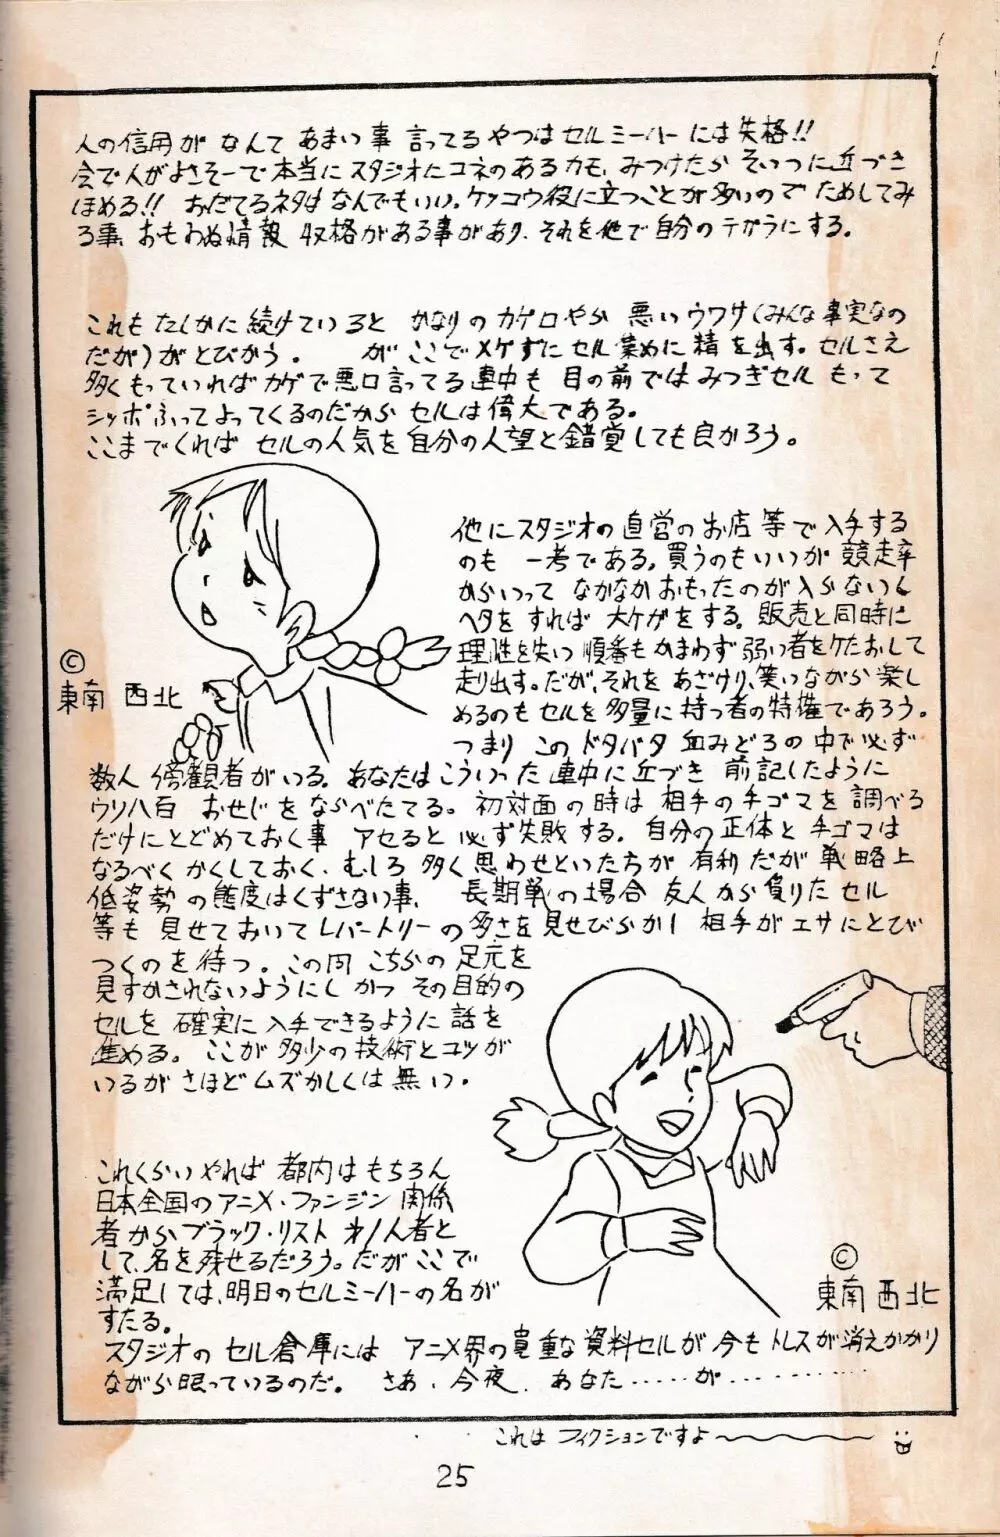 人の信用が なんて あまい事 言ってる やつは セルミーハーには 失格!!
会で人がよさそーで本当にスタジオにコネのあるカモ、みつけたら そいつに近づき
ほめる!! おだてるネタはなんでもいい。ケッコウ役に立つことが多いので ためしてみ
る事、おもわぬ情報 収格がある事があり、それを他で自分のテガラにする。
これも たしかに 続けていると かなりの カゲ口やら 悪いウワサ(みんな事実なの
だが)が とびかう。 が ここで メゲずに セル集めに 精を出す。セルさえ
多くもっていれば カゲで悪口言ってる連中も 目の前では みつぎセル もって
シッポふってよってくるのだから セルは偉大である。
ここまでくれば セルの人気を自分の人望と錯覚しても良かろう。
他にスタジオの直営のお店等で入手する
のも 一考である。買うのもいいが 競走率
からいって なかなかおもったのが入らないし
ヘタをすれば 大ケガをする。販売と同時に
理性を失い 順番もかまわず 弱い者をケたおして
走り出す。だが、それを あざけり、笑いながら 楽し
めるのもセルを多量に持つ者の特権であろう。
つまり この ドタバタ 血みどろの中で必ず
©
東南 西北
数人 傍観者がいる。あなたはこういった連中に近づき 前記したように
ウソ八百 おせじをならべたてる。初対面の時は 相手の手ゴマを調べる
だけにとどめておく事 アセると 必ず失敗する。自分の正体と手ゴマは
なるべくかくしておく、むしろ 多く思わせといた方が 有利だが 戦略上
低姿勢の態度はくずさない事、 長期戦の場合 友人から負りたセル
等も 見せておいてレパートリーの多さを見せびらかし 相手がエサにとび
つくのを待つ。この間 こちらの足元を
見すかされないようにし かつ その目的の
セルを 確実に入手できるように 話を
進める。ここが 多少の技術とコツが
いるが さほどムズかしくは無い。
これくらいやれば 都内はもちろん
日本全国のアニメ・ファンジン関係
者からブラック・リスト オ1人者と
して、名を残せるだろう。だが ここで
満足しては、明日のセルミーハーの名が
すたる。
©
東南 西北
スタジオの セル倉庫には アニメ界の貴重な資料セルが 今も トレスが消えかかり
ながら眠っているのだ。 さあ、今夜、あなた……が…………
これは フィクションですよ〜
25